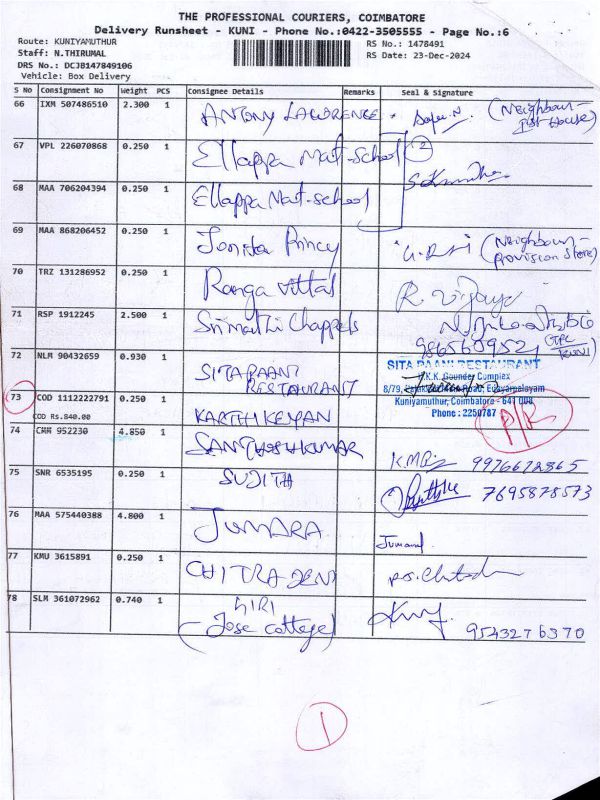 THE PROFESSIONAL COURIERS, COIMBATORE
Delivery Runsheet - KUNI - Phone No.:0422-3505555 - Page No.:6
Route: KUNIYAMUTHUR
RS No.: 1478491
Staff: N.THIRUMAL
RS Date: 23-Dec-2024
DRS No.: DCJB147849106
Vehicle: Box Delivery
S No Consignment No Weight PCS Consignee Details Remarks Seal & Signature
66 IXM 507486510 2.300 1 ANTONY LAWRENCE (Neighbour-
House)
67 VPL 226070868 0.250 1 Ellappa Mat-School 2
68 MAA 706204394 0.250 1 Ellappa Mat-school
69 MAA 868206452 0.250 1 Jonita Princy (Neighbour-
Provision Store)
70 TRZ 131286952 0.250 1 Ranga Vittal R. Vijaya
71 RSP 1912245 2.500 1 Srimathi Chappels
72 NLM 90432659 0.930 1 SITA PAANI
RESTAURANT
SITA PAANI RESTAURANT
K.K. Gounder Complex
8/79, Road, Edayarpalayam
Kuniyamuthur, Coimbatore - 641 008
Phone : 2250787
73 COD 1112222791 0.250 1 KARTHIKEYAN P/R
COD Rs.840.00
74 CHH 952230 4.850 1 SANTHOSHKUMAR 9976672865
75 SNR 6535195 0.250 1 SUJITH 7695878573
76 MAA 575440388 4.800 1 JUMARA
77 KMU 3615891 0.250 1 CHITRA DEVI
78 SLM 361072962 0.740 1 GIRI
(Jose cottege) 9543276370
1